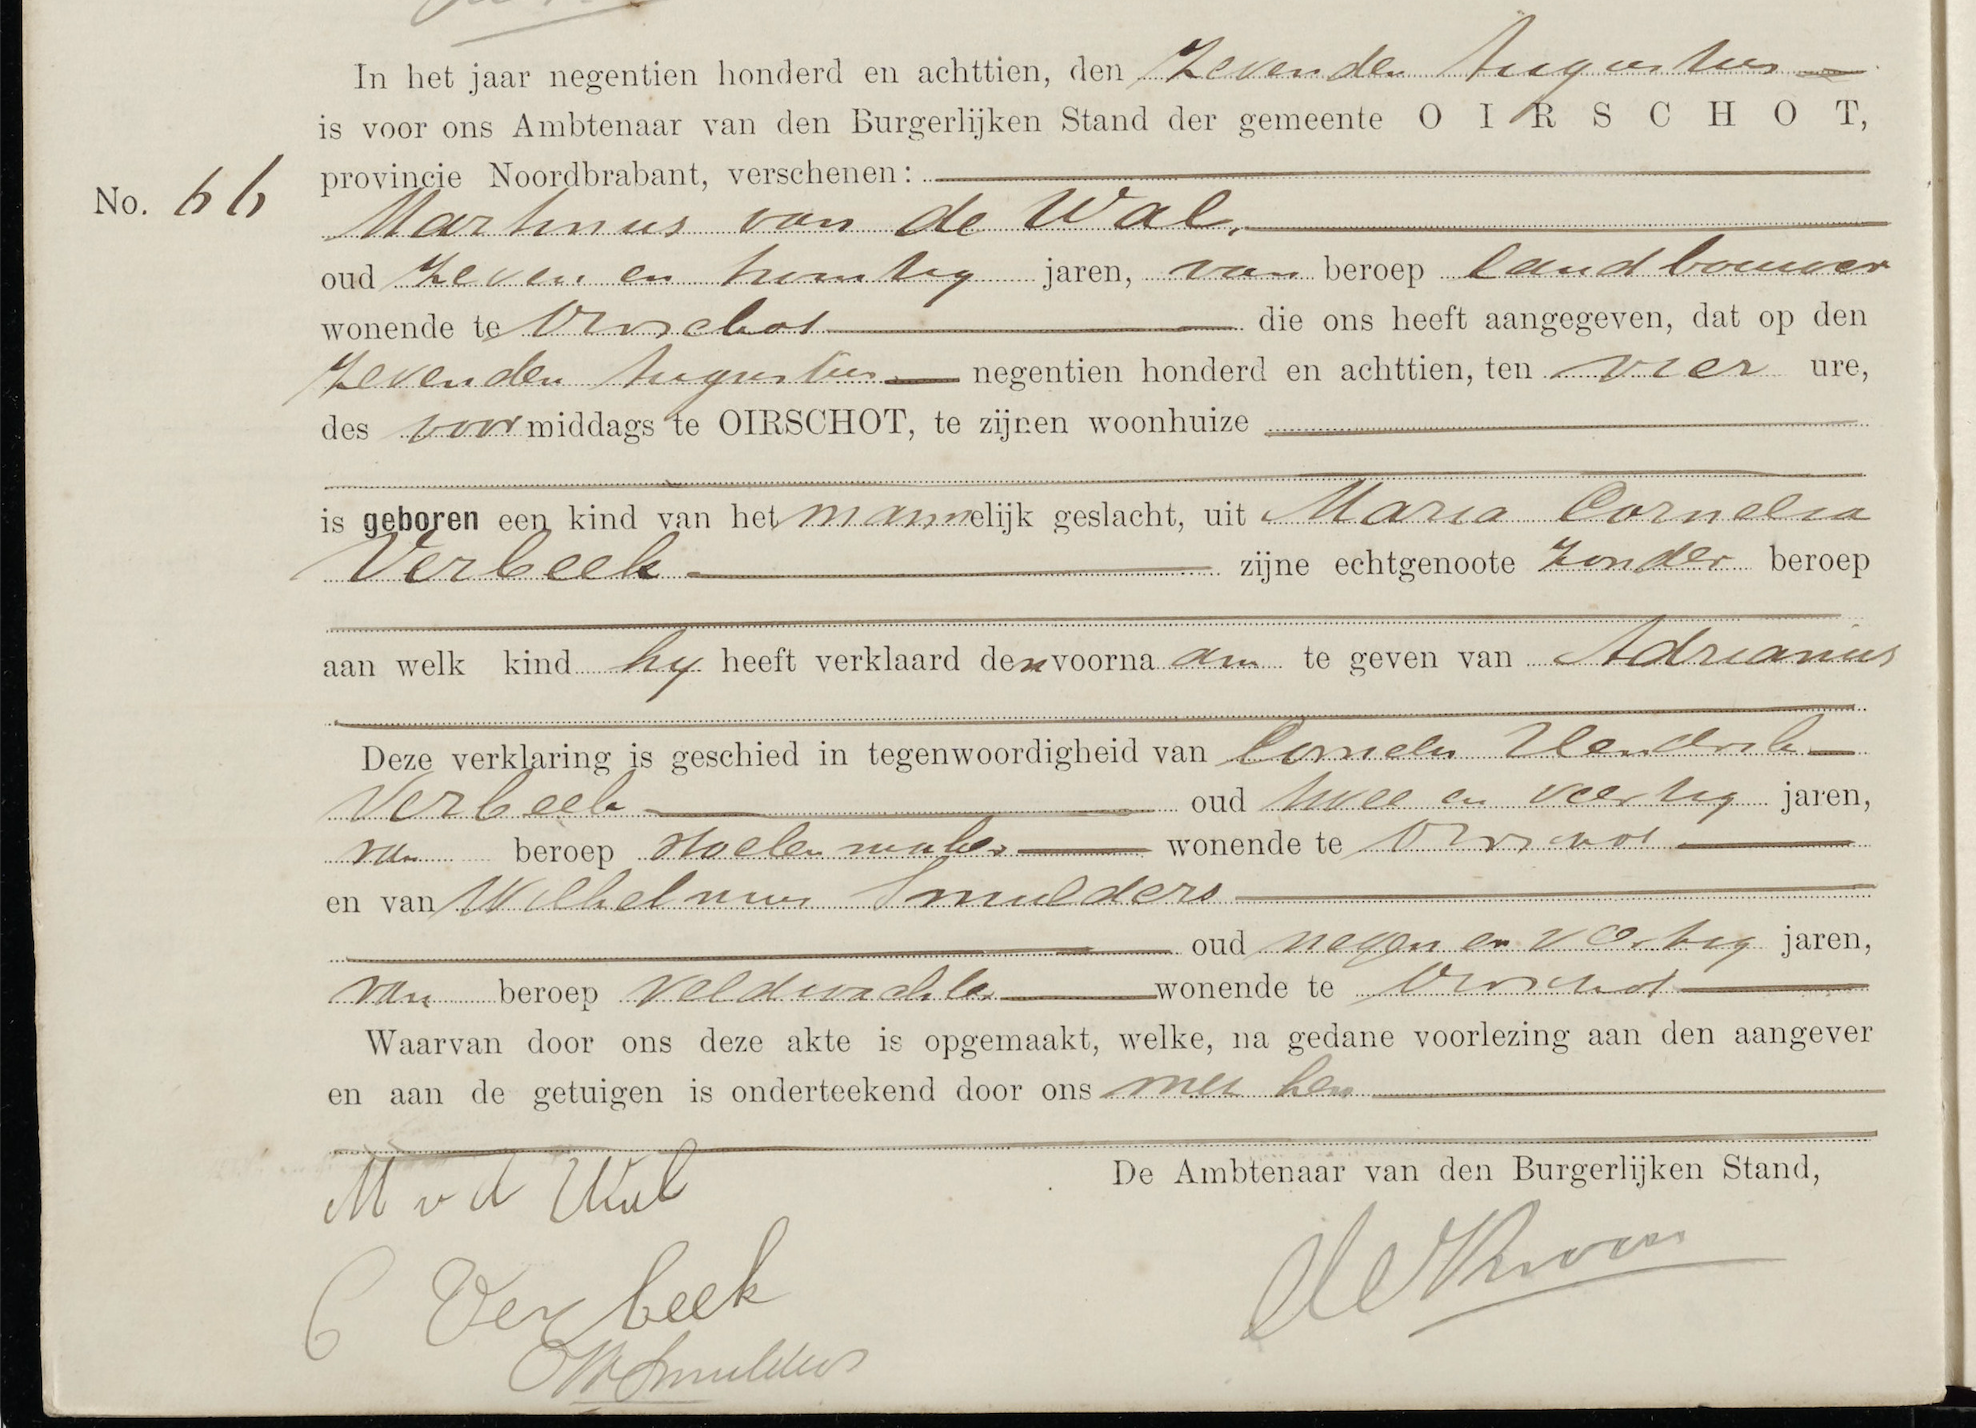 In het jaar negentien honderd en achttien, den zevenden Augustus
is voor ons Ambtenaar van den Burgerlijken Stand der gemeente OIRSCHOT,
provincie Noordbrabant, verschenen:
No. 66
Martinus van de Wal,
oud zeven en twintig jaren, van beroep landbouwer
wonende te Oirschot die ons heeft aangegeven, dat op den
zevenden Augustus negentien honderd en achttien, ten vier ure,
des voormiddags te OIRSCHOT, te zijnen woonhuize
is geboren een kind van het mannelijk geslacht, uit Maria Cornelia
Verbeek zijne echtgenoote zonder beroep
aan welk kind hy heeft verklaard den voornaam te geven van Adrianus
Deze verklaring is geschied in tegenwoordigheid van Cornelis Hendrik
Verbeek oud twee en veertig jaren,
van beroep stoelenmaker wonende te Oirschot
en van Wilhelmus Smulders
oud negen en veertig jaren,
van beroep veldwachter wonende te Oirschot
Waarvan door ons deze akte is opgemaakt, welke, na gedane voorlezing aan den aangever
en aan de getuigen is onderteekend door ons met hen
De Ambtenaar van den Burgerlijken Stand,
M v d Wal
C Verbeek
W Smulders